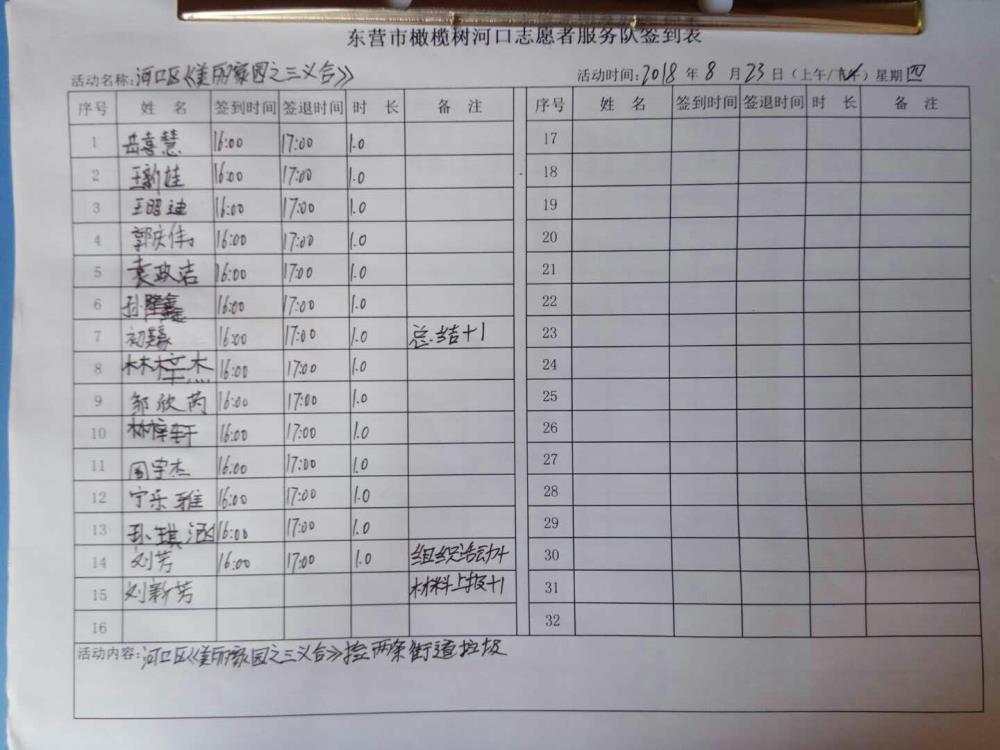 东营市橄榄树河口志愿者服务队签到表
活动名称:河口区《美丽家园之三义合》 活动时间:2018年8月23日(上午/下午)星期四
序号 姓名 签到时间 签退时间 时长 备注 序号 姓名 签到时间 签退时间 时长 备注
1 岳喜慧 16:00 17:00 1.0 17
2 王新娃 16:00 17:00 1.0 18
3 王昭迪 16:00 17:00 1.0 19
4 郭庆伟 16:00 17:00 1.0 20
5 袁政洁 16:00 17:00 1.0 21
6 孙隆鑫 16:00 17:00 1.0 22
7 初 16:00 17:00 1.0 总结+1 23
8 林梓杰 16:00 17:00 1.0 24
9 邹欣芮 16:00 17:00 1.0 25
10 林梓轩 16:00 17:00 1.0 26
11 周宇杰 16:00 17:00 1.0 27
12 宁乐雅 16:00 17:00 1.0 28
13 孙琪涵 16:00 17:00 1.0 29
14 刘芳 16:00 17:00 1.0 组织活动+ 30
15 刘新芳 材料上报+1 31
16 32
活动内容:河口区《美丽家园之三义合》捡两条街道垃圾